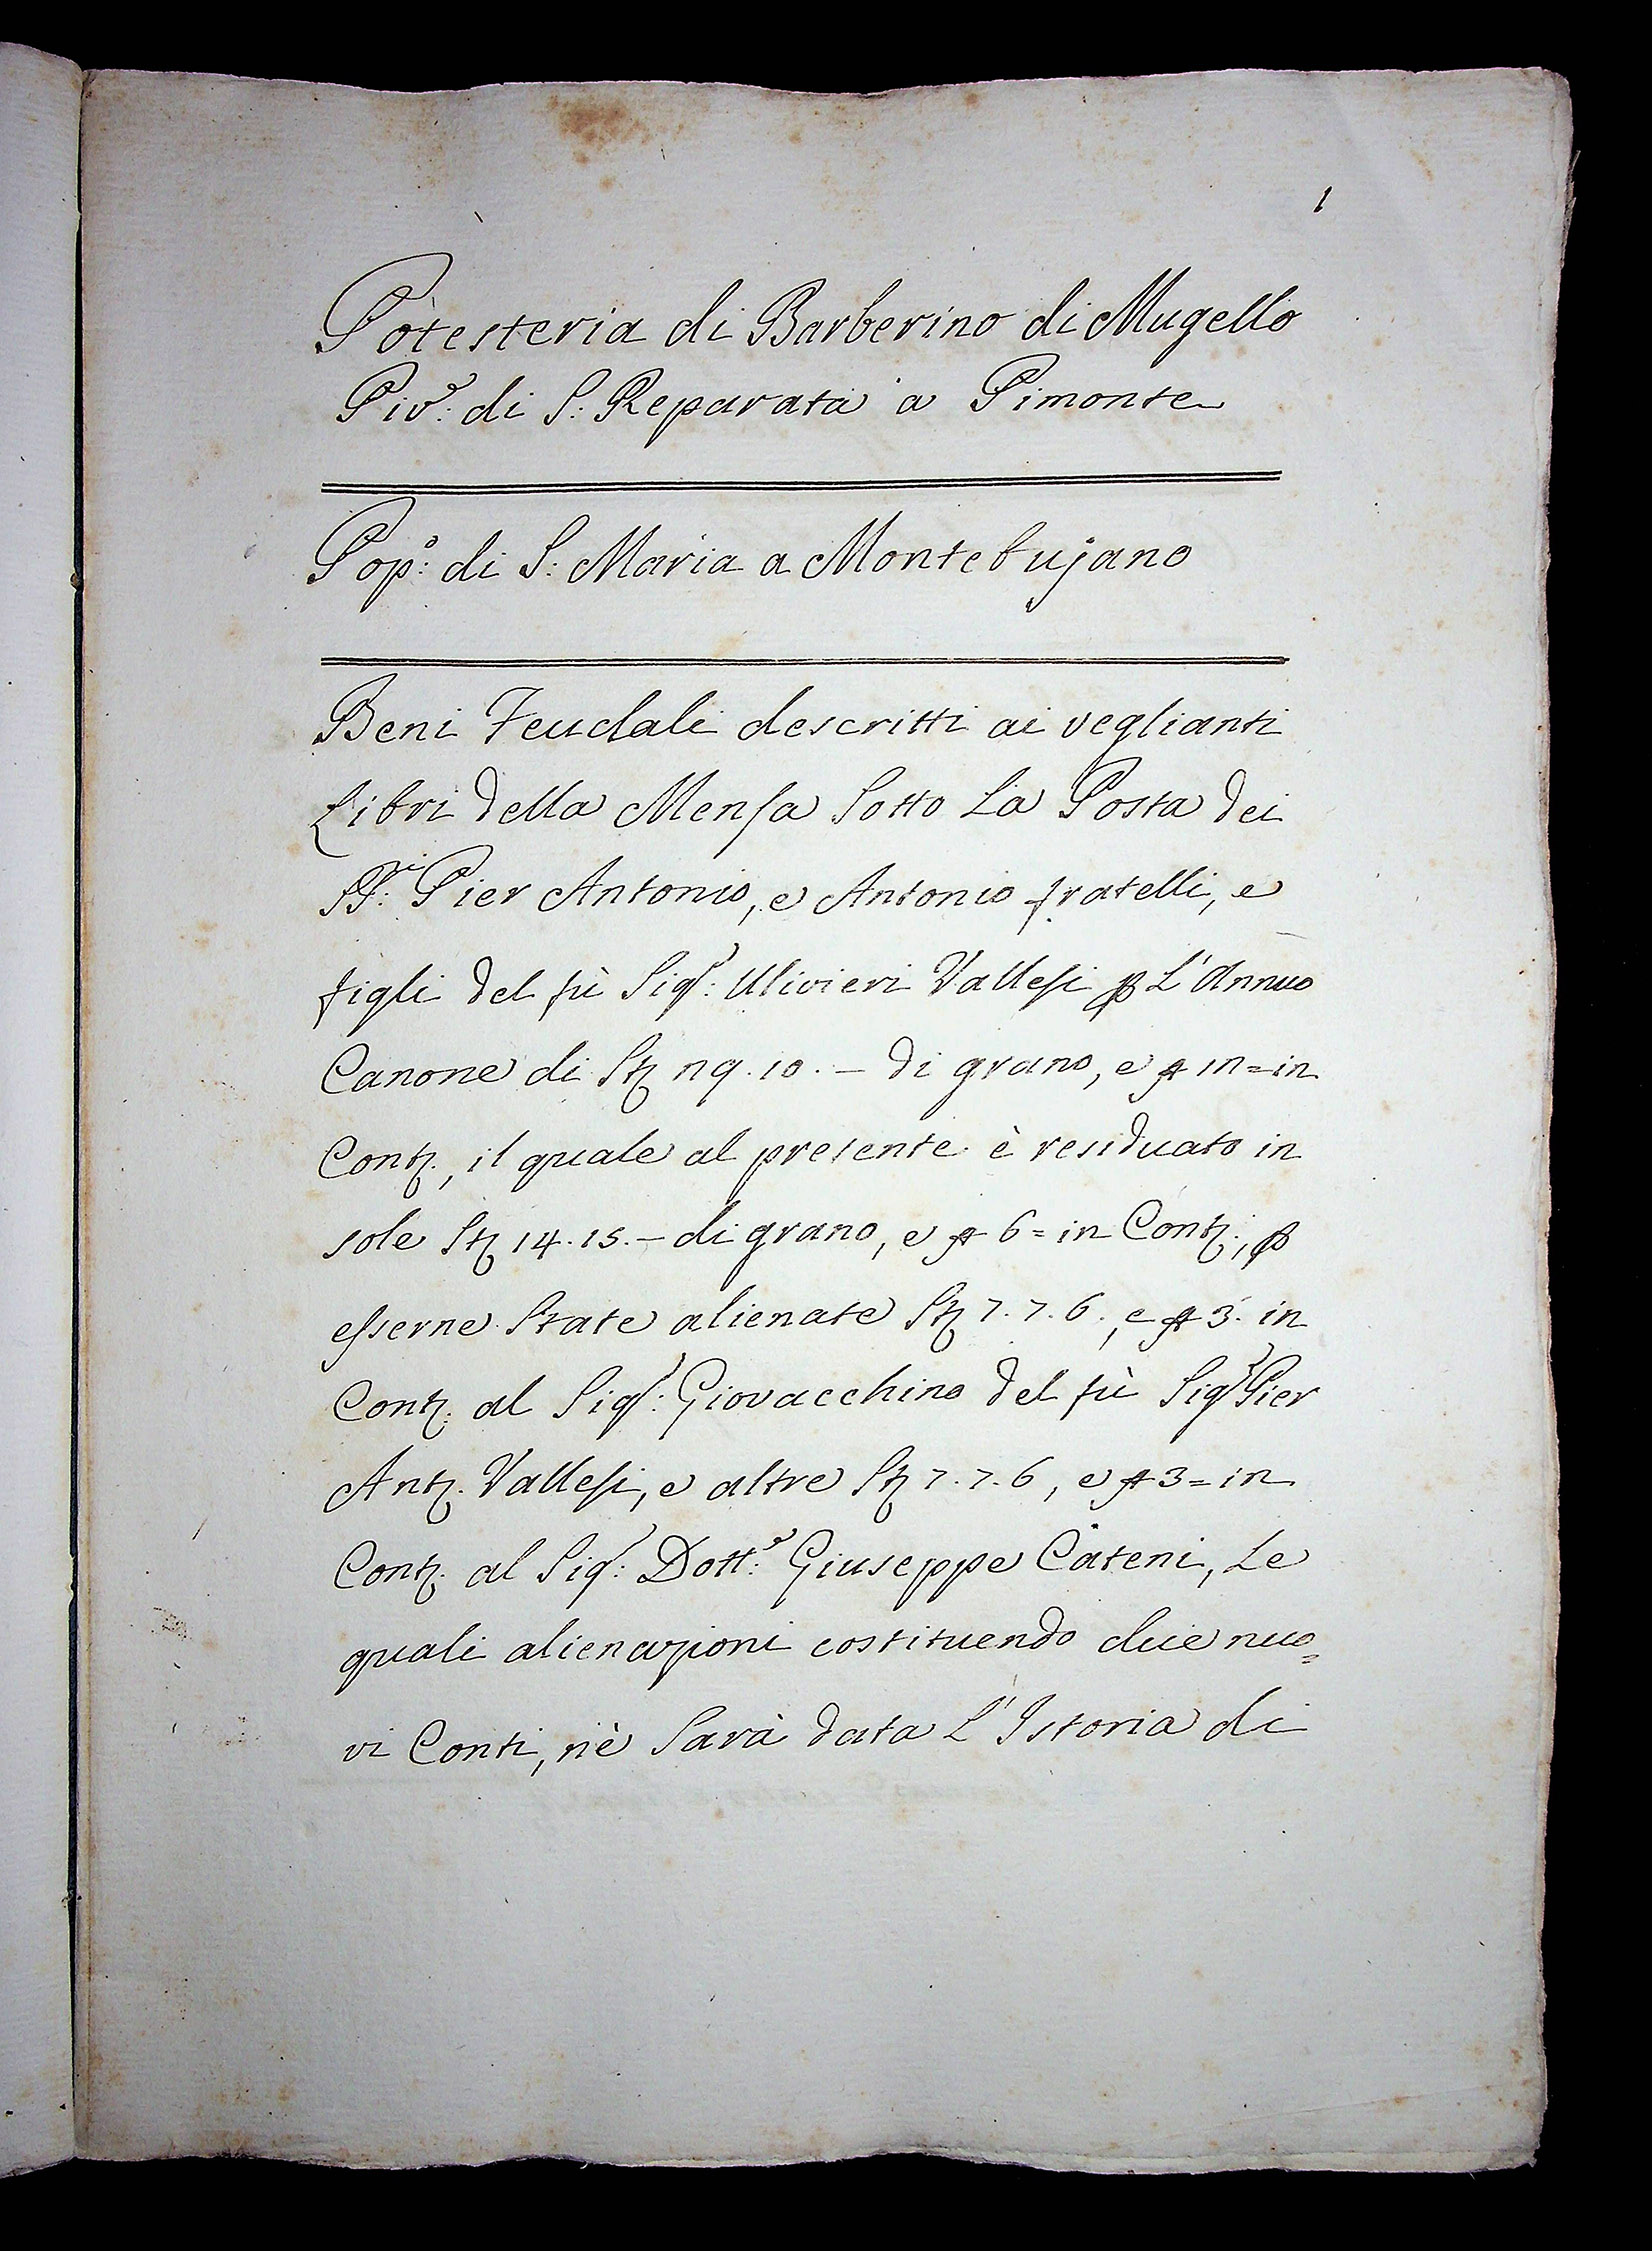 1
Potesteria di Barberino di Mugello
Piv.e di S: Reparata a Pimonte
Pop.o di S: Maria a Montebujano
Beni Feudali descritti ai veglianti
Libri della Mensa Sotto La Posta dei
SS.ri Pier Antonio, e Antonio fratelli, e
figli del fù Sig.r Ulivieri Vallesi p L'Annuo
Canone di St. 29. 10. — di grano, e 12 = in
Cont., il quale al presente è residuato in
sole St. 14. 15. — di grano, e 6 = in Cont., p
esserne State alienate St. 7. 7. 6., e 3. in
Cont. al Sig.r Giovacchino del fù Sig.r Pier
Ant. Vallesi, e altre St. 7. 7. 6, e 3 = in
Cont. al Sig.r Dott.e Giuseppe Cateni, Le
quali alienazioni costituendo due nuo=
vi Conti, nè Sarà data L'Istoria di